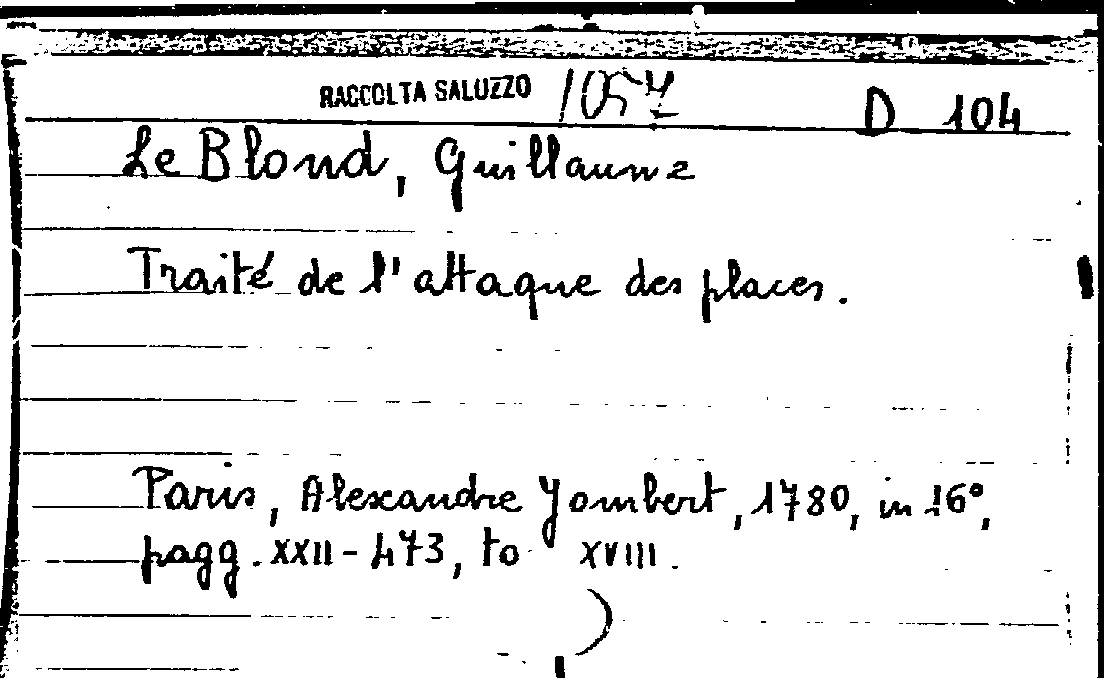 RACCOLTA SALUZZO D 104
Le Blond, Guillaume
Traité de l'attaque des places.
Paris, Alexandre Jombert, 1780, in 16°,
pagg. XXII - 473, to XVIII.